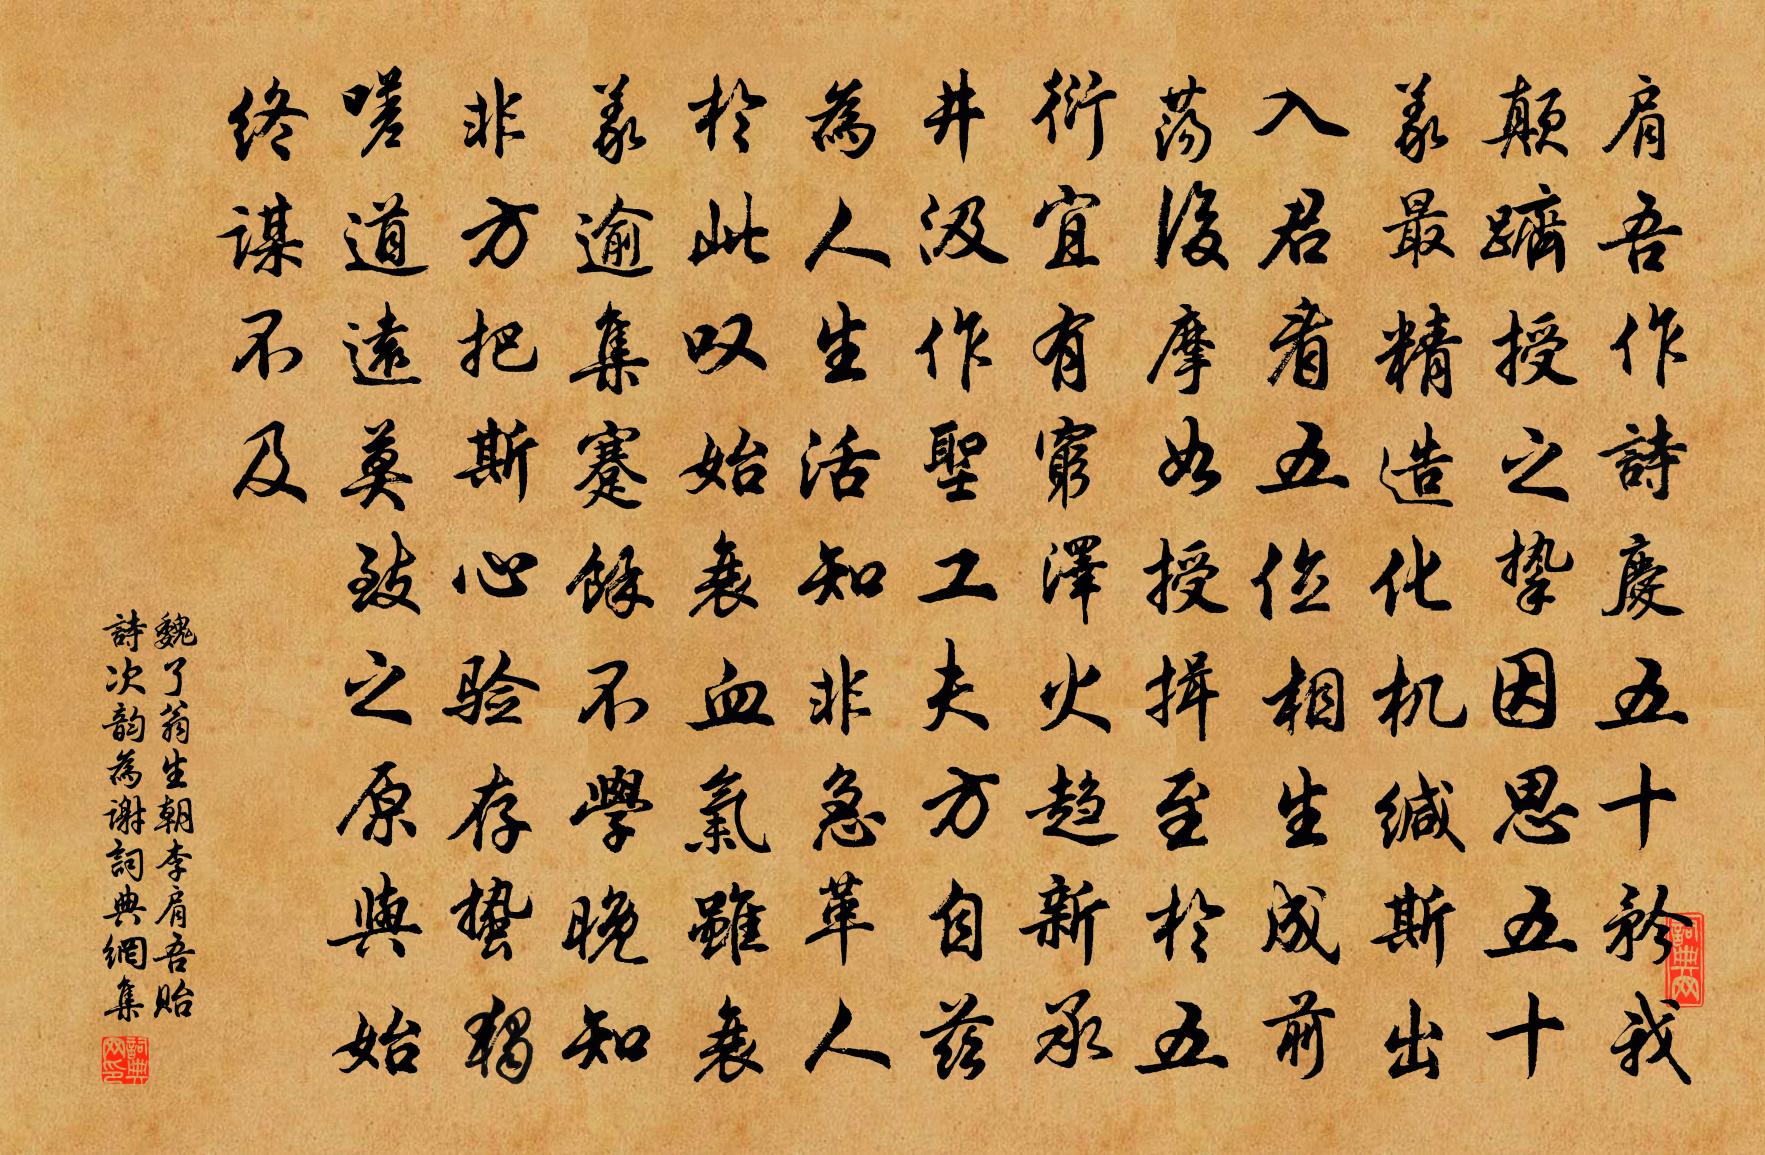 肩吾作詩慶五十矜我
顛躋授之挚因思五十
義最精造化机缄斯出
入君看五位相生成前
荡後摩如授揖至於五
衍宜有窮澤火趋新承
井汲作聖工夫方自兹
為人生活知非急革人
於此叹始衰血氣雖衰
義逾集蹇餘不學晚知
非方把斯心验存蛰獨
嗟道遠莫致之原與始
终谋不及
魏了翁生朝李肩吾贻
詩次韵為谢詞典網集
詞典网
詞典网印